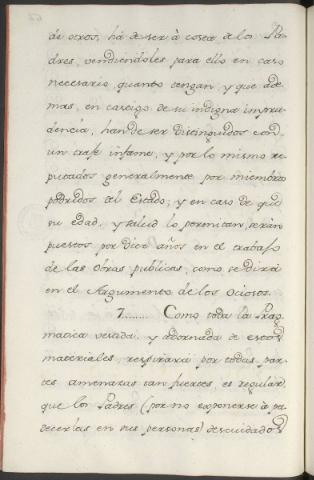 de otros, há de ser à costa de los Pa-
dres, vendiendoles para ello en caso
necesario, quanto tengan, y que ade-
mas, en castigo de su indigna impru-
dencia, han de ser distinguidos con
un trage infame, y por lo mismo re-
putados generalmente por miembros
podridos del Estado; y en caso de que
su edad, y salud lo permitan, serán
puestos por diez años en el trabajo
de las obras publicas, como se dirá
en el Argumento de los Ociosos.
7....... Como toda la Prag-
matica vestida, y adornada de estos
materiales, respirará por todas par-
tes amenazas tan fuertes, es regular,
que los Padres (por no exponerse à pa-
decerlas en sus personas) descuidados